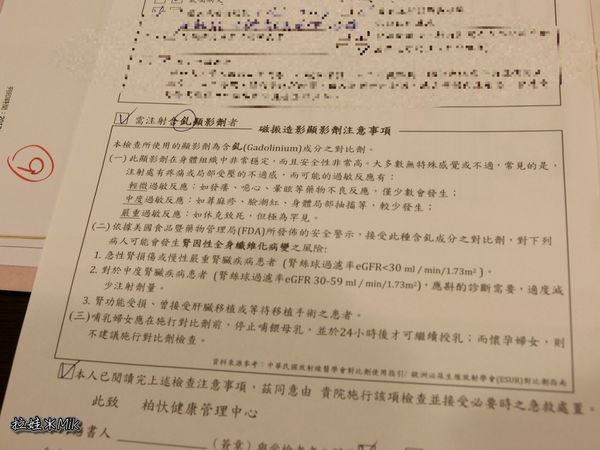 需注射含釓顯影劑者
磁振造影顯影劑注意事項
本檢查所使用的顯影劑為含釓(Gadolinium)成分之對比劑。
(一)此顯影劑在身體組織中非常穩定,而且安全性非常高。大多數無特殊感覺或不適,常見的是,
注射處有疼痛或局部受壓的不適感,而可能的過敏反應有:
輕微過敏反應:如發癢、噁心、暈眩等藥物不良反應,僅少數會發生;
中度過敏反應:如蕁麻疹、臉潮紅、身體局部抽搐等,較少發生;
嚴重過敏反應:如休克致死,但極為罕見。
(二)依據美國食品暨藥物管理局(FDA)所發佈的安全警示,接受此種含釓成分之對比劑,對下列
病人可能會發生腎因性全身纖維化病變之風險:
1. 急性腎損傷或慢性嚴重腎臟疾病患者 (腎絲球過濾率eGFR<30 ml / min/1.73m²)。
2. 對於中度腎臟疾病患者 (腎絲球過濾率eGFR 30-59 ml / min/1.73m²),應斟酌診斷需要,適度減
少注射劑量。
3. 腎功能受損、曾接受肝臟移植或等待移植手術之患者。
(三)哺乳婦女應在施打對比劑前,停止哺餵母乳,並於24小時後才可繼續授乳;而懷孕婦女,則
不建議施行對比劑檢查。
資料來源參考:中華民國放射線醫學會對比劑使用指引/ 歐洲泌尿生殖放射學會(ESUR)對比劑指南
本人已閱讀完上述檢查注意事項,茲同意由 貴院施行該項檢查並接受必要時之急救處置。
此致 柏忕健康管理中心
書人
(簽章)與受檢者
拉娃米Mik